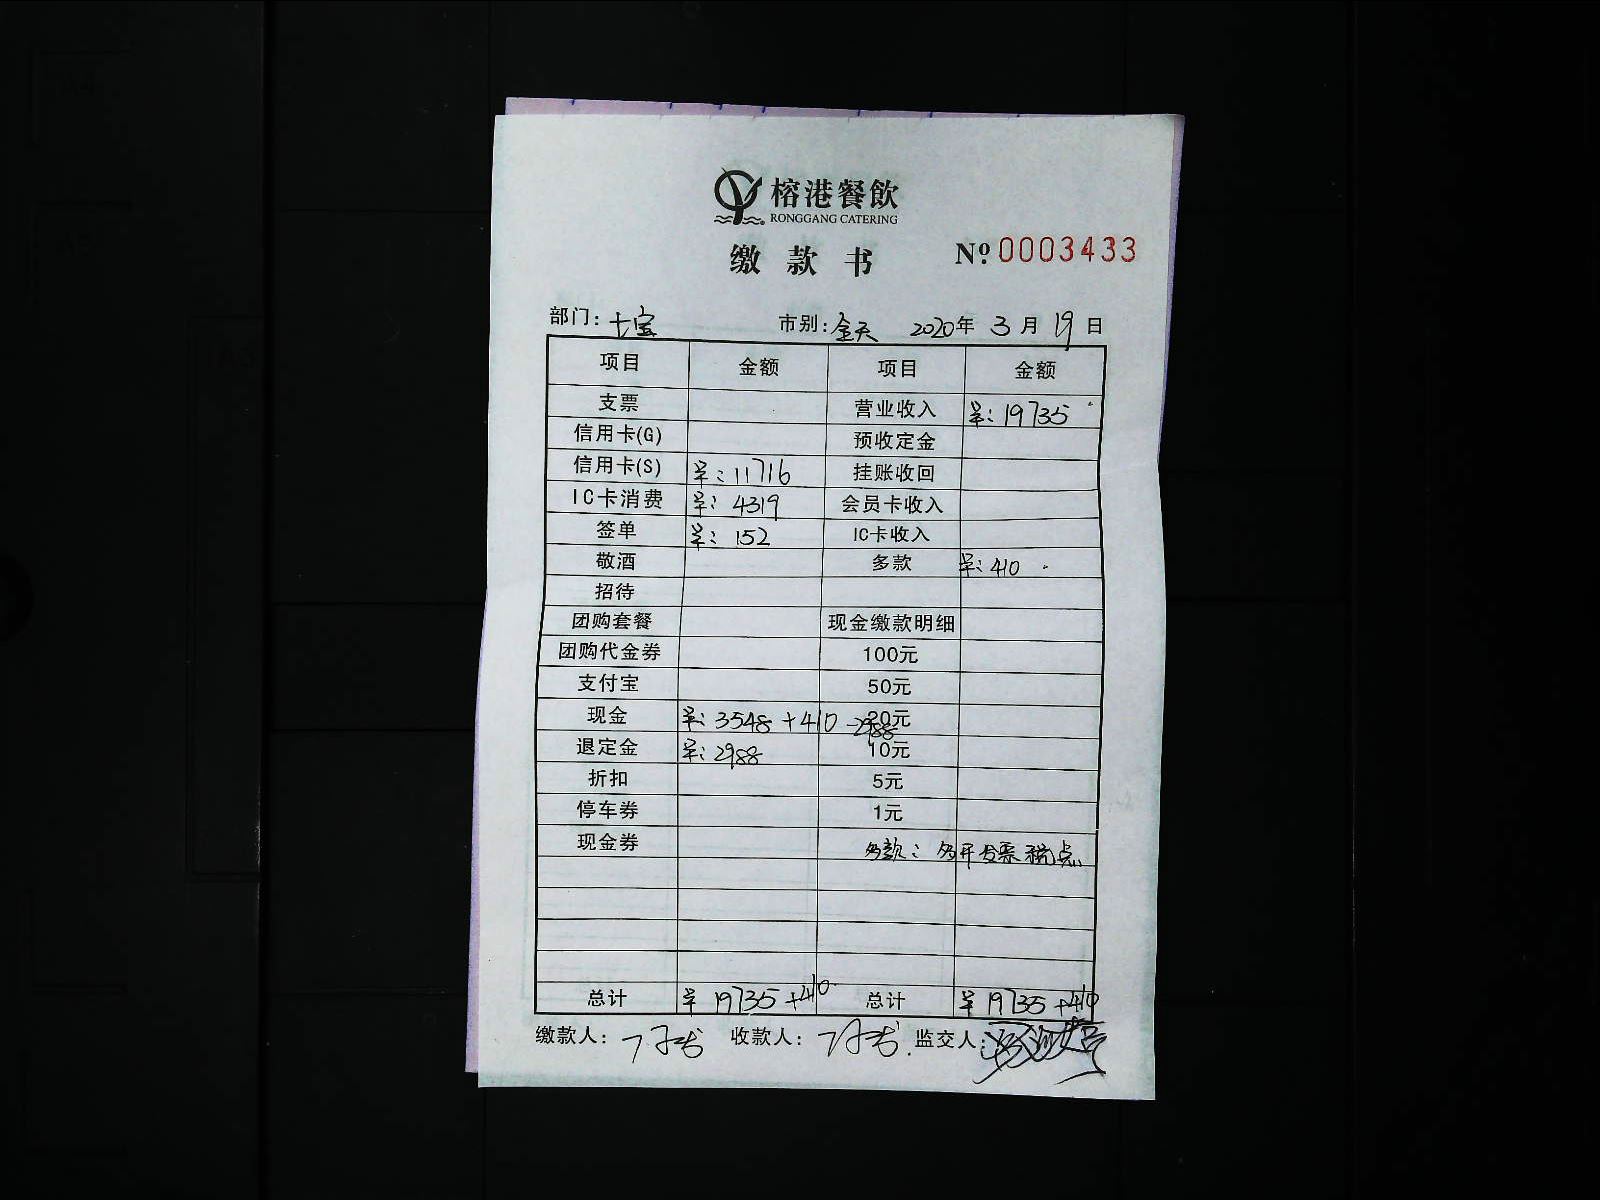 榕港餐飲
RONGGANG CATERING
缴款书 №0003433
部门：七宝 市别：全天 2020年3月19日
项目 金额 项目 金额
支票 营业收入 ¥：19735
信用卡(G) 预收定金
信用卡(S) ¥：11716 挂账收回
IC卡消费 ¥：4319 会员卡收入
签单 ¥：152 IC卡收入
敬酒 多款 ¥：410
招待
团购套餐 现金缴款明细
团购代金券 100元
支付宝 50元
现金 ¥：3548+410-2988 20元
退定金 ¥：2988 10元
折扣 5元
停车券 1元
现金券 多款：多开发票税点
总计 ¥19735+410 总计 ¥19735+410
缴款人： 收款人： 监交人：